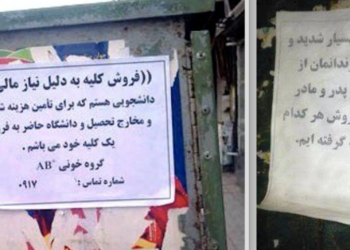 ((فروش کلیه به دلیل نیاز مالی
دانشجویی هستم که برای تأمین هزینه
و مخارج تحصیل و دانشگاه حاضر به
یک کلیه خود می باشم .
گروه خونی AB+
شماره تماس : ۰۹۱۷
شدید و
از
پدر و مادر
هر کدام
گرفته ایم.